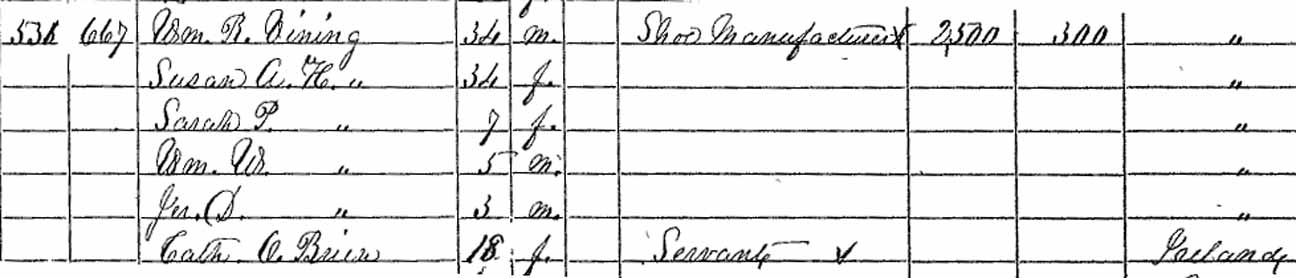 667 Wm. R. Vining 34 m. Shoe Manufacturer 2,500 300 "
Susan A. H. " 34 f. "
Sarah P. " 7 f. "
Wm. W. " 5 m. "
D. " 3 m. "
Cath. O. Brien 18 f. Servant Ireland